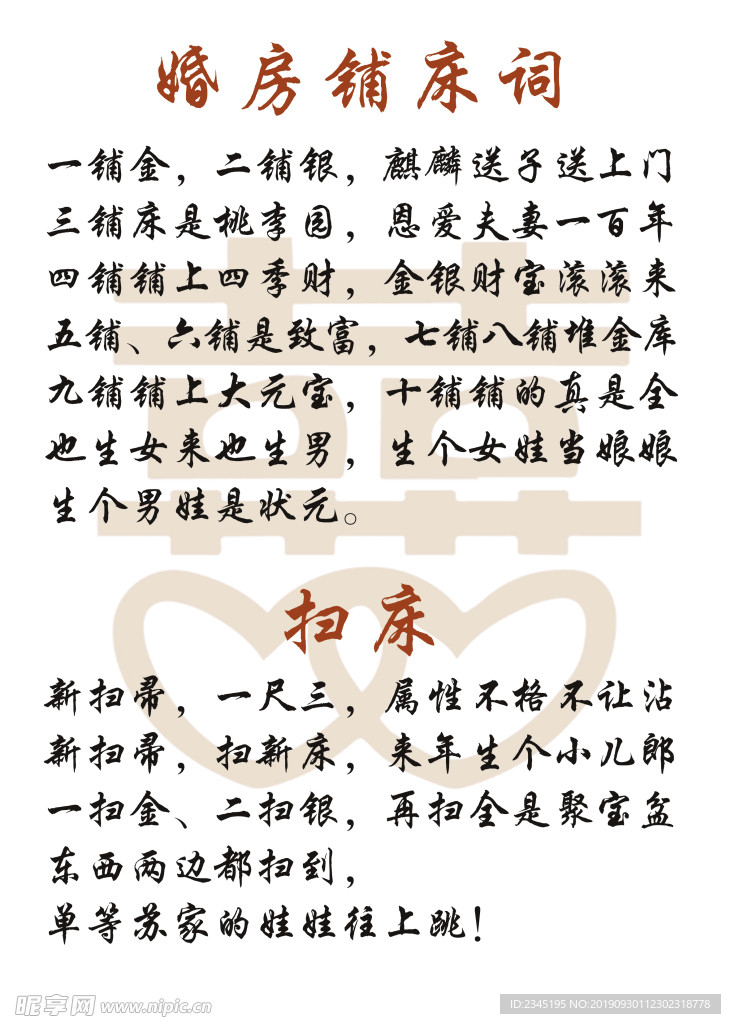 婚房铺床词
一铺金，二铺银，麒麟送子送上门
三铺床是桃李园，恩爱夫妻一百年
四铺铺上四季财，金银财宝滚滚来
五铺、六铺是致富，七铺八铺堆金库
九铺铺上大元宝，十铺铺的真是全
也生女来也生男，生个女娃当娘娘
生个男娃是状元。
扫床
新扫帚，一尺三，属性不格不让沾
新扫帚，扫新床，来年生个小儿郎
一扫金、二扫银，再扫全是聚宝盆
东西两边都扫到，
单等苏家的娃娃往上跳！
昵享网 www.nipic.cn
ID:2345195 NO:20190930112302318778